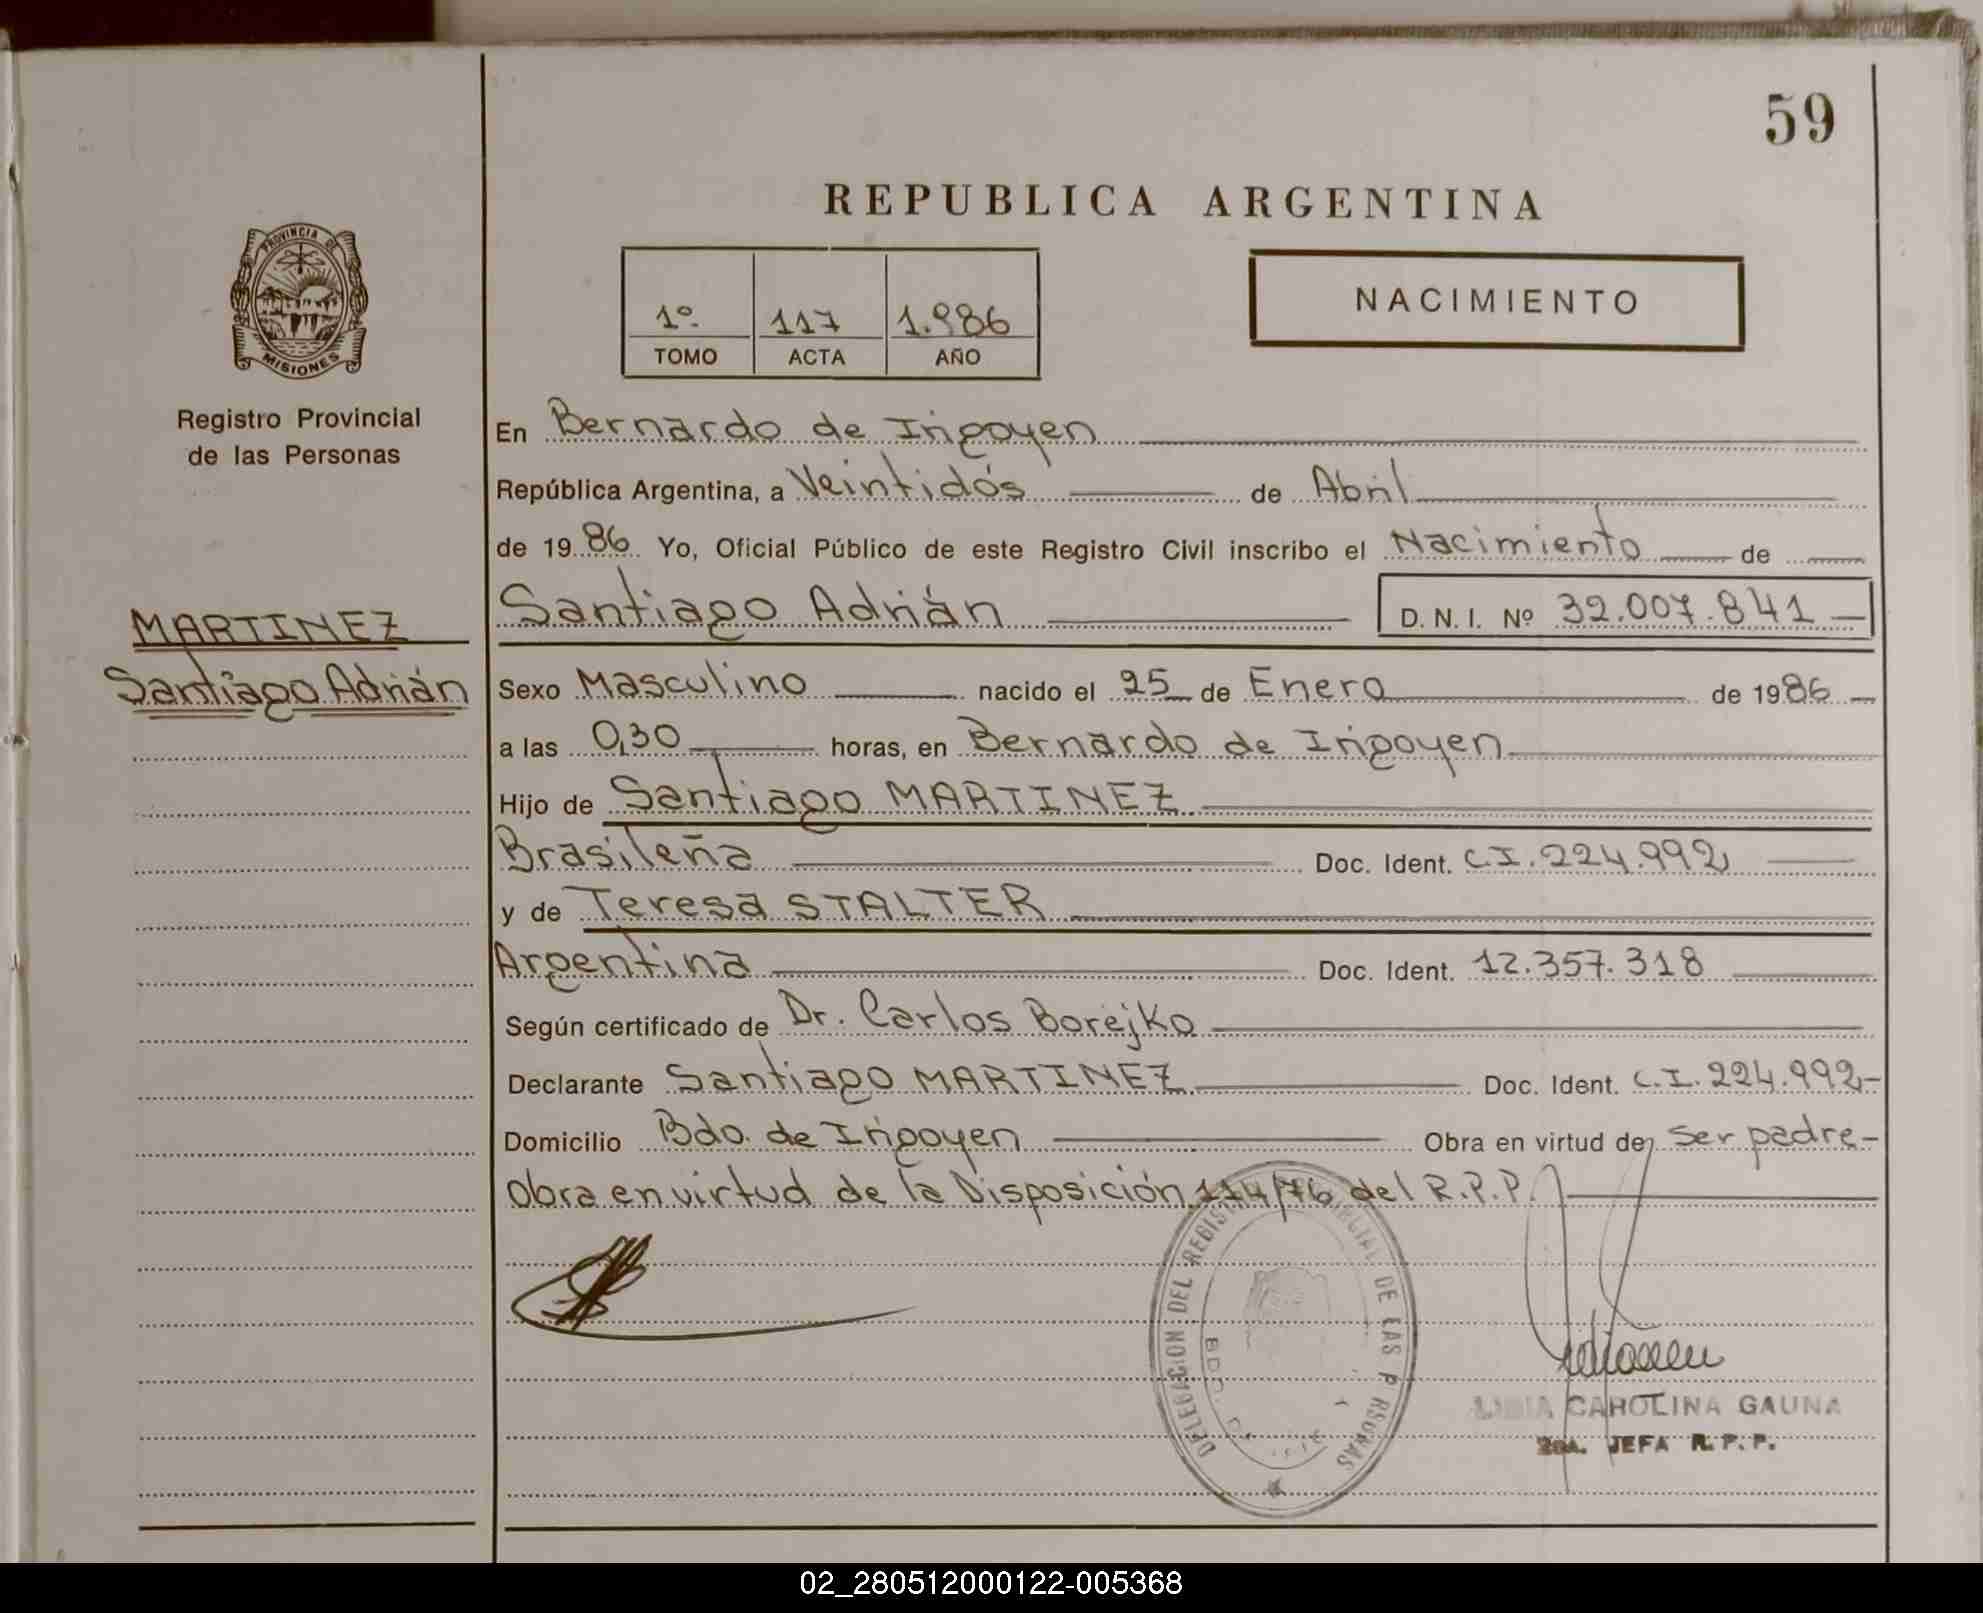 59
REPUBLICA ARGENTINA
PROVINCIA DE
MISIONES
Registro Provincial
de las Personas
1º 117 1.986
TOMO ACTA AÑO
NACIMIENTO
En Bernardo de Irigoyen
República Argentina, a Veintidós de Abril
de 1986 Yo, Oficial Público de este Registro Civil inscribo el Nacimiento de
MARTINEZ
Santiago Adrián
Santiago Adrián D. N. I. Nº 32.007.841
Sexo Masculino nacido el 25 de Enero de 1986
a las 0,30 horas, en Bernardo de Irigoyen
Hijo de Santiago MARTINEZ
Brasileña Doc. Ident. C.I. 224.992
y de Teresa STALTER
Argentina Doc. Ident. 12.357.318
Según certificado de Dr. Carlos Borejko
Declarante Santiago MARTINEZ Doc. Ident. C.I. 224.992-
Domicilio Bdo. de Irigoyen Obra en virtud de ser padre-
Obra en virtud de la Disposición 174/76 del R.P.P.
DELEGACION DEL REGISTRO PROVINCIAL DE LAS P RSONAS
CAROLINA GAUNA
JEFA R. P. P.
02_280512000122-005368